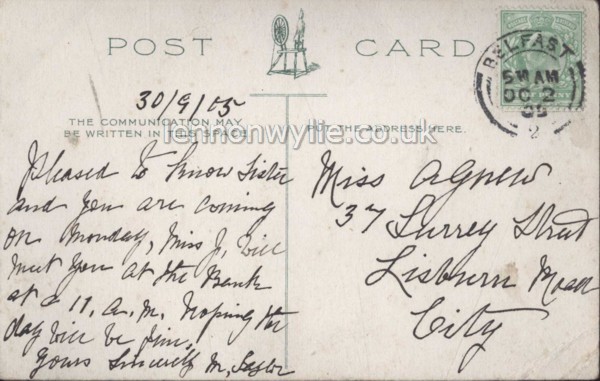 POST CARD
BELFAST
5 AM
OC 2
05
2
30/9/05
THE COMMUNICATION MAY
BE WRITTEN IN THIS SPACE
PUT THE ADDRESS HERE.
lennonwylie.co.uk
Pleased to know Sister
and you are coming
on Monday, Miss J, will
meet you at the Bank
at 11. a.m. Hoping the
day will be fine,
Yours Sincerely M,
Miss Agnew
37 Surrey Street
Lisburn Road
City